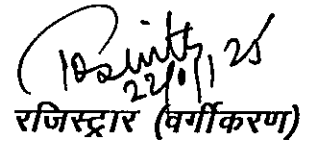 22/01/25
रजिस्ट्रार (वर्गीकरण)